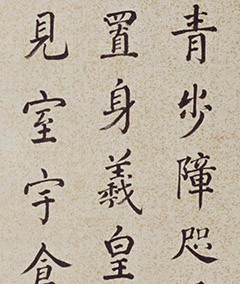 青步障咫
置身羲皇
見室宇倉